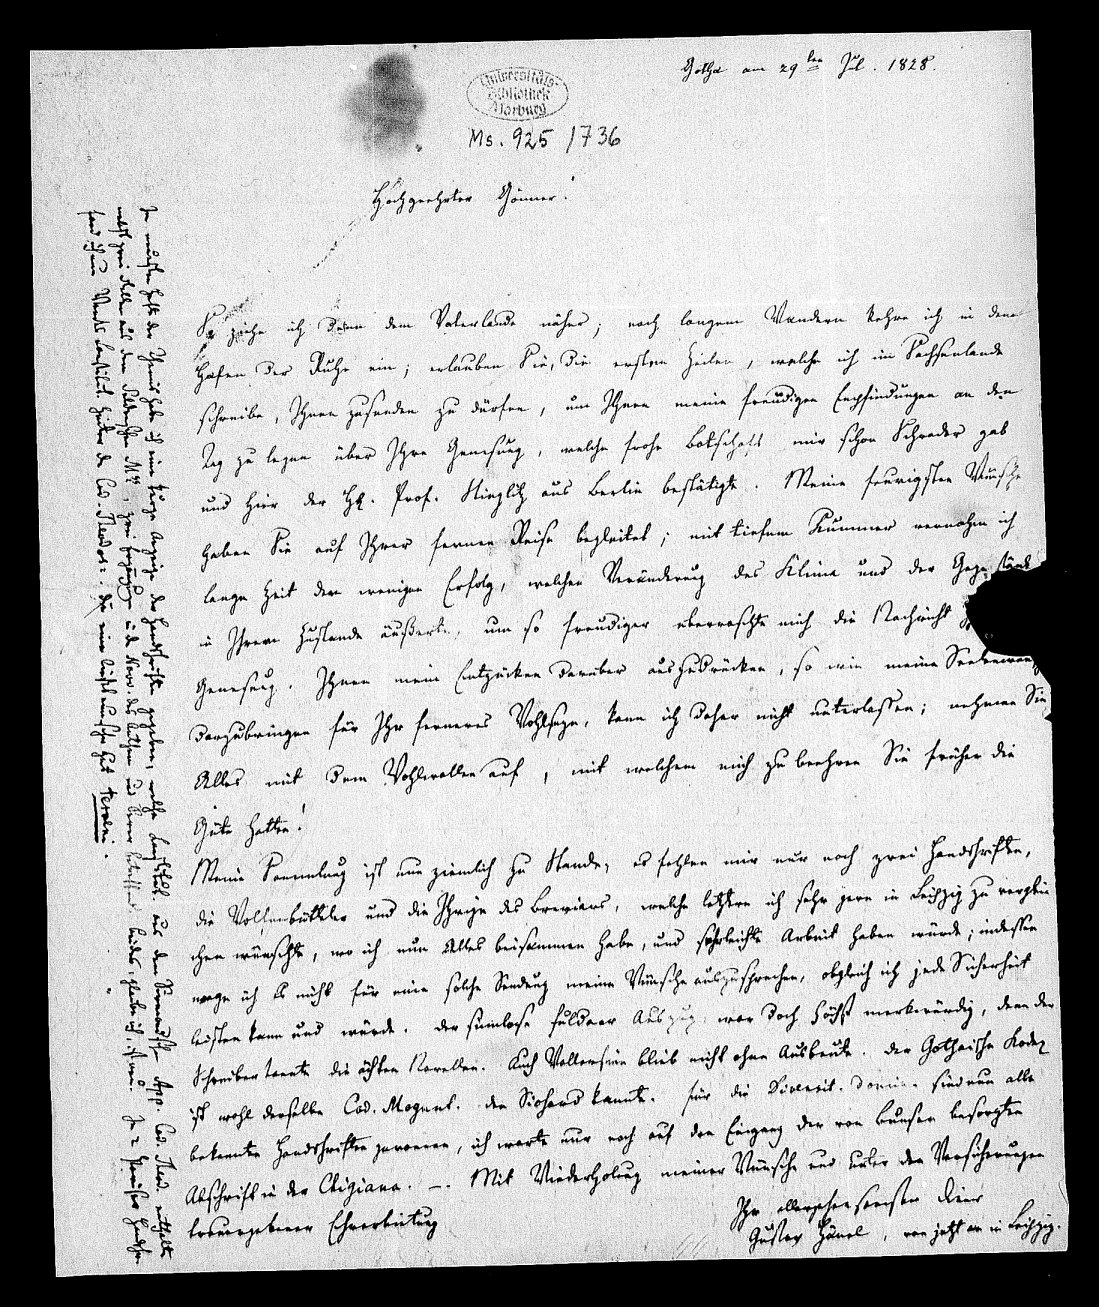 Gotha am 29ten Jul. 1828.
Universitäts-
Bibliothek
Marburg
Ms. 925/736
Hochgeehrter Gönner!
So ziehe ich denn dem Vaterlande näher; nach langem Wandern kehre ich in den
Hafen der Ruhe ein; erlauben Sie, die ersten Zeilen, welche ich im Sachsenlande
schreibe, Ihnen zusenden zu dürfen, um Ihnen meine freudigen Empfindungen an den
Tag zu legen über Ihre Genesung, welche frohe Botschaft mir schon Schrader gab
und hier der H. Prof. Stieglitz aus Berlin bestätigte. Meine feurigsten Wünsche
haben Sie auf Ihrer fernen Reise begleitet; mit tiefem Kummer vernahm ich
lange Zeit den wenigen Erfolg, welchen Veränderung des Klima und der Gegenstände
in Ihrem Zustande äußerte, um so freudiger überraschte mich die Nachricht
Genesung. Ihnen mein Entzücken darüber auszudrücken, so wie meine
darzubringen für Ihr ferneres Wohlseyn, kann ich daher nicht unterlassen; nehmen Sie
Alles mit dem Wohlwollen auf, mit welchem mich zu beehren Sie früher die
Güte hatten!
Meine Sammlung ist nun ziemlich zu Stande; es fehlen mir nur noch zwei Handschriften,
die Wolfenbüttler und die Ihrige des Breviars, welche letztere ich sehr gern in Leipzig zu verglei
chen wünschte, wo ich nun Alles beisammen habe, und leichte Arbeit haben würde; indessen
wage ich es nicht für eine solche Sendung meine Wünsche auszusprechen, obgleich ich jede Sicherheit
leisten kann und würde. Der Fuldaer Auszug war doch höchst merkwürdig, denn der
Schreiber kannte die ächten Novellen. Auch blieb nicht ohne Ausbeute. Der Gothaische Kodex
ist wohl derselbe Cod. Mogunt. den Sichard kannte. Für die sind nun alle
bekannte Handschriften, ich warte nur noch auf den Eingang der von Bunsen besorgten
Abschrift in der Chigiana. — Mit Wiederholung meiner Wünsche und unter den Versicherungen
treuergebener Ehrerbietung
Ihr allergehorsamster Diener
Gustav Hänel, von jetzt an in Leipzig.
In neuesten Heft der Themis habe ich eine kurze Anzeige der Handschriften gegeben, welche aus dem App. Cod. Theod. enthält
nebst zwei Stellen aus den Mss,
Cod. Theodos: